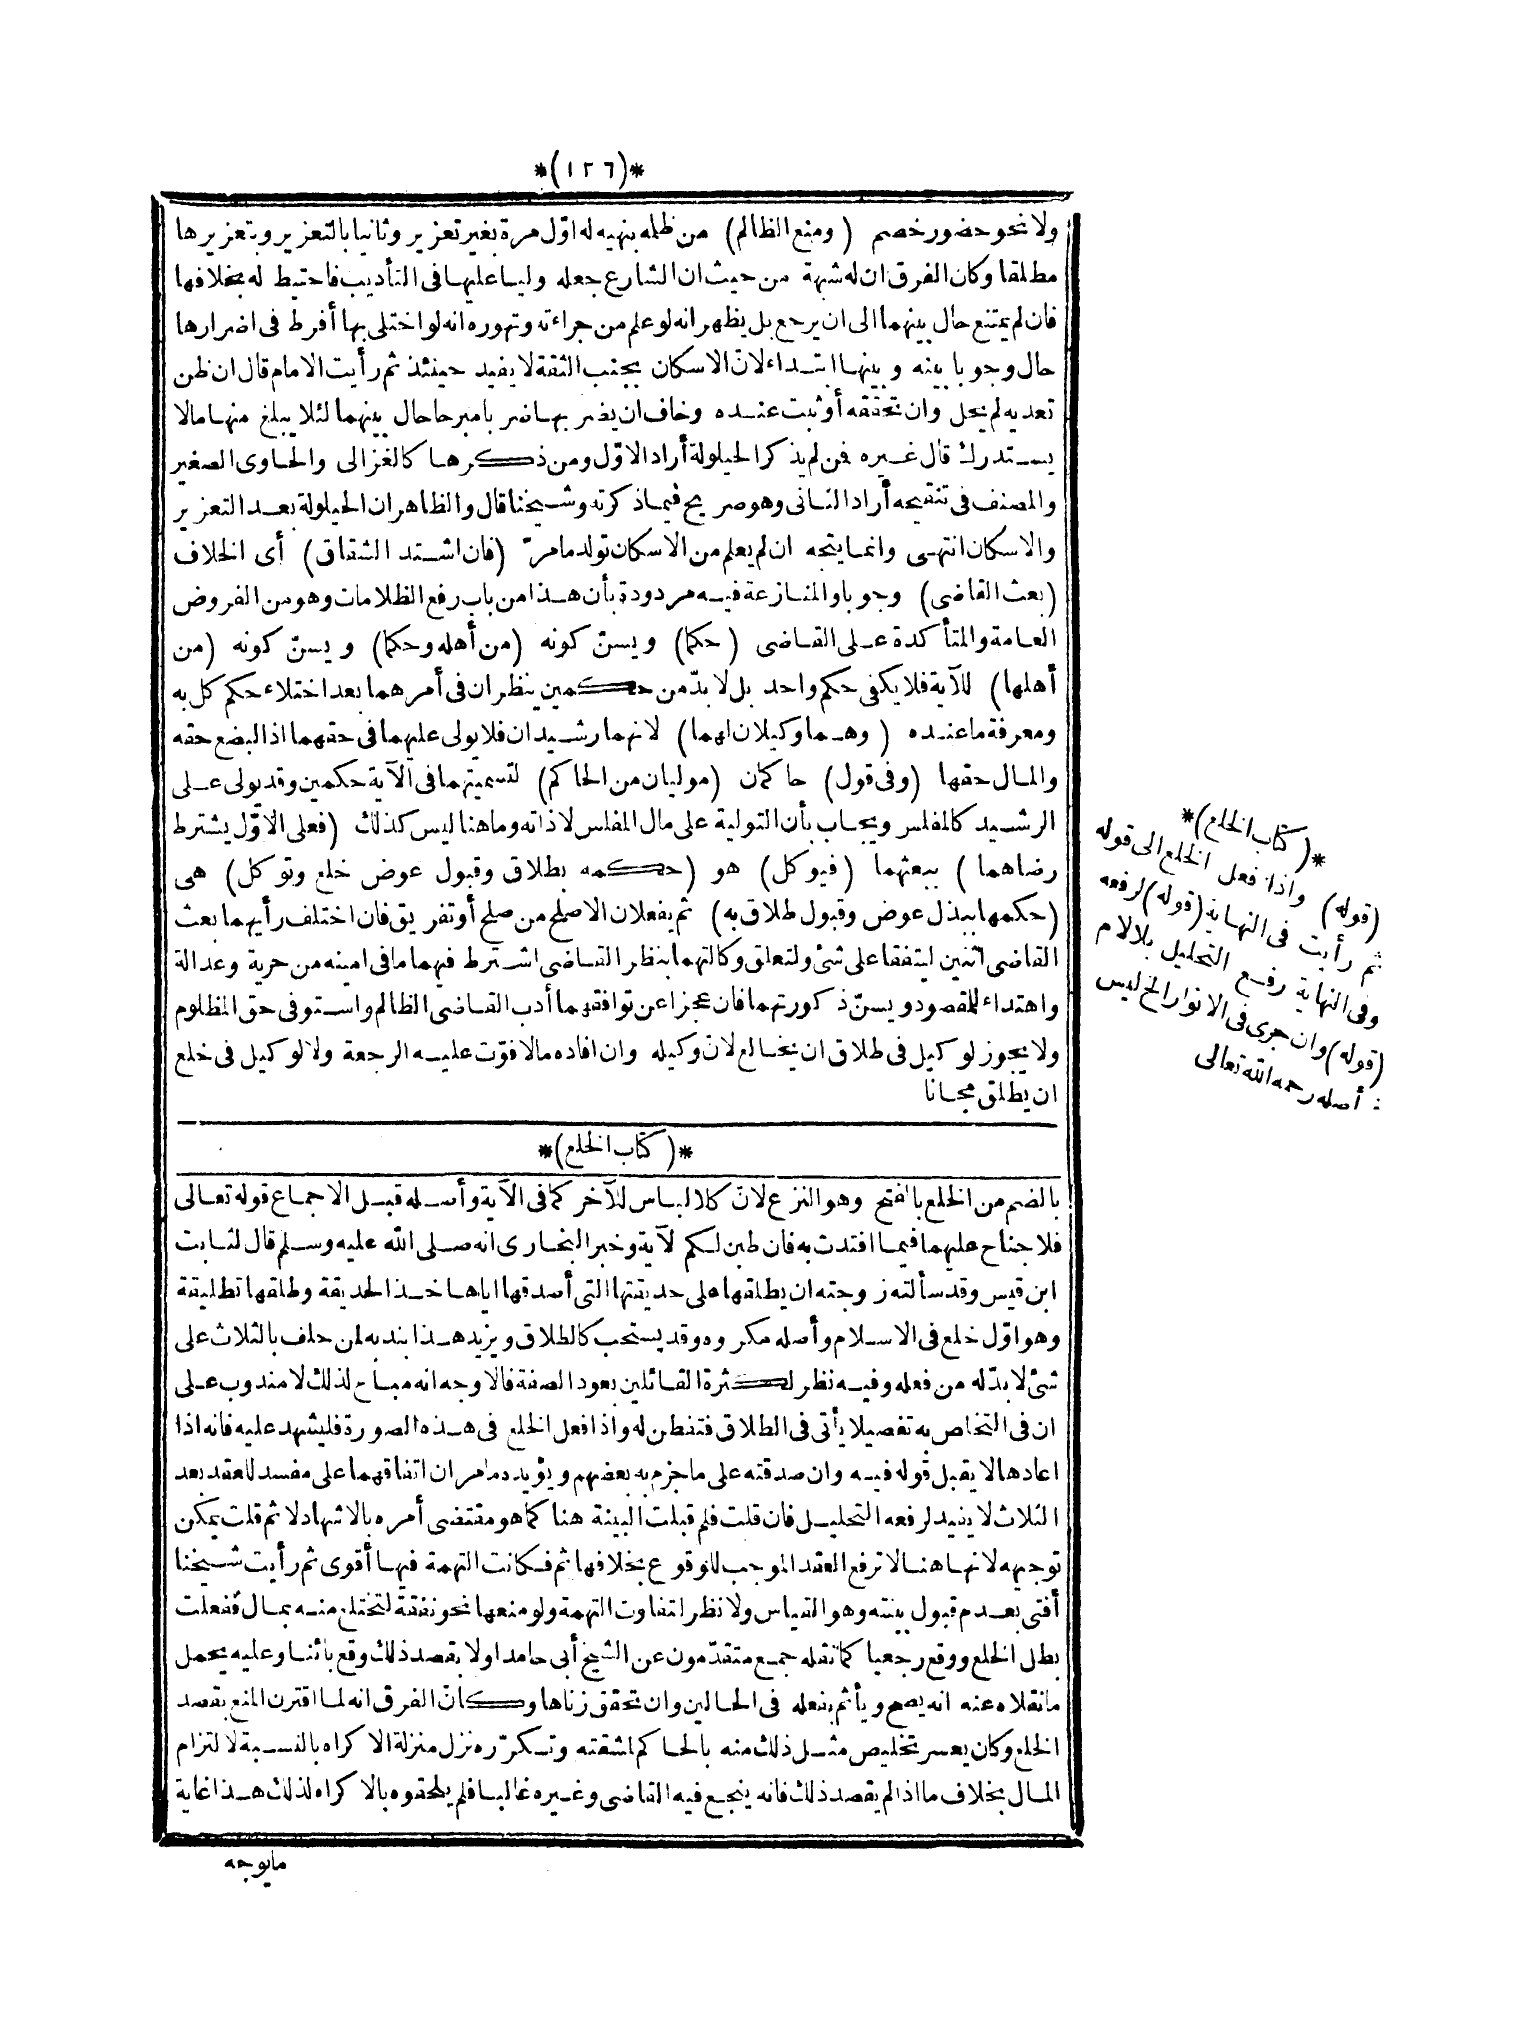 *(١٢٦)*
ولا نحو حضور خصم (ومنع الظالم) من ظلمه بنهيه له اوّل مرة بغير تعزير وثانيا بالتعزير وبتعزيرها
مطلقا وكان الفرق ان له شبهة من حيث ان الشارع جعله وليا عليها فى التأديب فاحتيط له بخلافها
فان لم يمتنع حال بينهما الى ان يرجع بل يظهر انه لو علم من جراءته وتهوره انه لو اختلى بها أفرط فى اضرارها
حال وجوبا بينه وبينها ابتداء لانّ الاسكان بجنب الثقة لا يفيد حينئذ ثم رأيت الامام قال ان ظن
تعديه لم يحل وان تحققه أو ثبت عنده وخاف ان يضر بها ضربا مبرحا حال بينهما لئلا يبلغ منها ما لا
يستدرك قال غيره فمن لم يذكر الحيلولة أراد الاوّل ومن ذكرها كالغزالى والحاوى الصغير
والمصنف فى تنقيحه أراد الثانى وهو صريح فيما ذكرته وشيخنا قال والظاهر ان الحيلولة بعد التعزير
والاسكان انتهى وانما يتجه ان لم يعلم من الاسكان تولد ما مرّ (فان اشتد الشقاق) أى الخلاف
(بعث القاضى) وجوبا والمنازعة فيه مردودة بأن هذا من باب رفع الظلامات وهو من الفروض
العامة والمتأكدة على القاضى (حكما) ويسنّ كونه (من أهله وحكما) ويسنّ كونه (من
أهلها) للآية فلا يكفى حكم واحد بل لا بدّ من حكمين ينظران فى أمرهما بعد اختلاء حكم كل به
ومعرفة ما عنده (وهما وكيلان لهما) لانهما رشيدان فلا يولى عليهما فى حقهما اذ البضع حقه
والمال حقها (وفى قول) حاكمان (موليان من الحاكم) لتسميتهما فى الآية حكمين وقد يولى على
الرشيد كالمفلس ويجاب بأن التولية على مال المفلس لا ذاته وما هنا ليس كذلك (فعلى الاوّل يشترط
رضاهما) ببعثهما (فيوكل) هو (حكمه بطلاق وقبول عوض خلع وتوكل) هى
(حكمها ببذل عوض وقبول طلاق به) ثم يفعلان الاصلح من صلح أو تفريق فان اختلف رأيهما بعث
القاضى اثنين ليتفقا على شئ ولتعلق وكالتهما بنظر القاضى اشترط فيهما ما فى امينه من حرية وعدالة
واهتداء للمقصود ويسنّ ذكورتهما فان عجزا عن توافقهما أدب القاضى الظالم واستوفى حق المظلوم
ولا يجوز لوكيل فى طلاق ان يخالع لانّ وكيله وان افاده مالا فوّت عليه الرجعة ولا لوكيل فى خلع
ان يطلق مجانا
*(كتاب الخلع)*
بالضم من الخلع بالفتح وهو النزع لانّ كلا لباس للآخر كما فى الآية وأصله قبل الاجماع قوله تعالى
فلا جناح عليهما فيما افتدت به فان طبن لكم لآية وخبر البخارى انه صلى الله عليه وسلم قال لثابت
ابن قيس وقد سألته زوجته ان يطلقها على حديقتها التى أصدقها اياها خذ الحديقة وطلقها تطليقة
وهو اوّل خلع فى الاسلام وأصله مكروه وقد يستحب كالطلاق ويزيد هذا بندبه لمن حلف بالثلاث على
شئ لا بدّ له من فعله وفيه نظر لكثرة القائلين بعود الصفة فالاوجه انه مباح لذلك لا مندوب على
ان فى التخاص به تفصيلا يأتى فى الطلاق فتفطن له واذا فعل الخلع فى هذه الصورة فليشهد عليه فانه اذا
اعادها لا يقبل قوله فيه وان صدقته على ما جزم به بعضهم ويؤيده ما مر ان اتفاقهما على مفسد للعقد بعد
الثلاث لا يفيد لرفعه التحليل فان قلت فلم قبلت البينة هنا كما هو مقتضى أمره بالاشهاد لا ثم قلت يمكن
توجيهه لانها هنا لا ترفع العقد الموجب للوقوع بخلافها ثم فكانت التهمة فيها أقوى ثم رأيت شيخنا
أفتى بعدم قبول بينته وهو القياس ولا نظر لتفاوت التهمة ولو منعها نحو نفقة لتختلع منه بمال ففعلت
بطل الخلع ووقع رجعيا كما نقله جمع متقدّمون عن الشيخ أبى حامد او لا بقصد ذلك وقع بائنا وعليه يحمل
ما نقلاه عنه انه يصح ويأثم بفعله فى الحالين وان تحقق زناها وكانّ الفرق انه لما اقترن المنع بقصد
الخلع وكان يعسر تخليص مثل ذلك منه بالحاكم لمشقته وتكرّره نزل منزلة الاكراه بالنسبة لالتزام
المال بخلاف ما اذا لم يقصد ذلك فانه ينجع فيه القاضى وغيره غالبا فلم يلحقوه بالاكراه لذلك هذا غاية
ما يوجه
*(كتاب الخلع)*
(قوله) واذا فعل الخلع الى قوله
ثم رأيت فى النهاية (قوله) لرفعه
وفى النهاية رفع التحليل بلا لام
(قوله) وان جرى فى الانوار الخ ليس
أصله رحمه الله تعالى